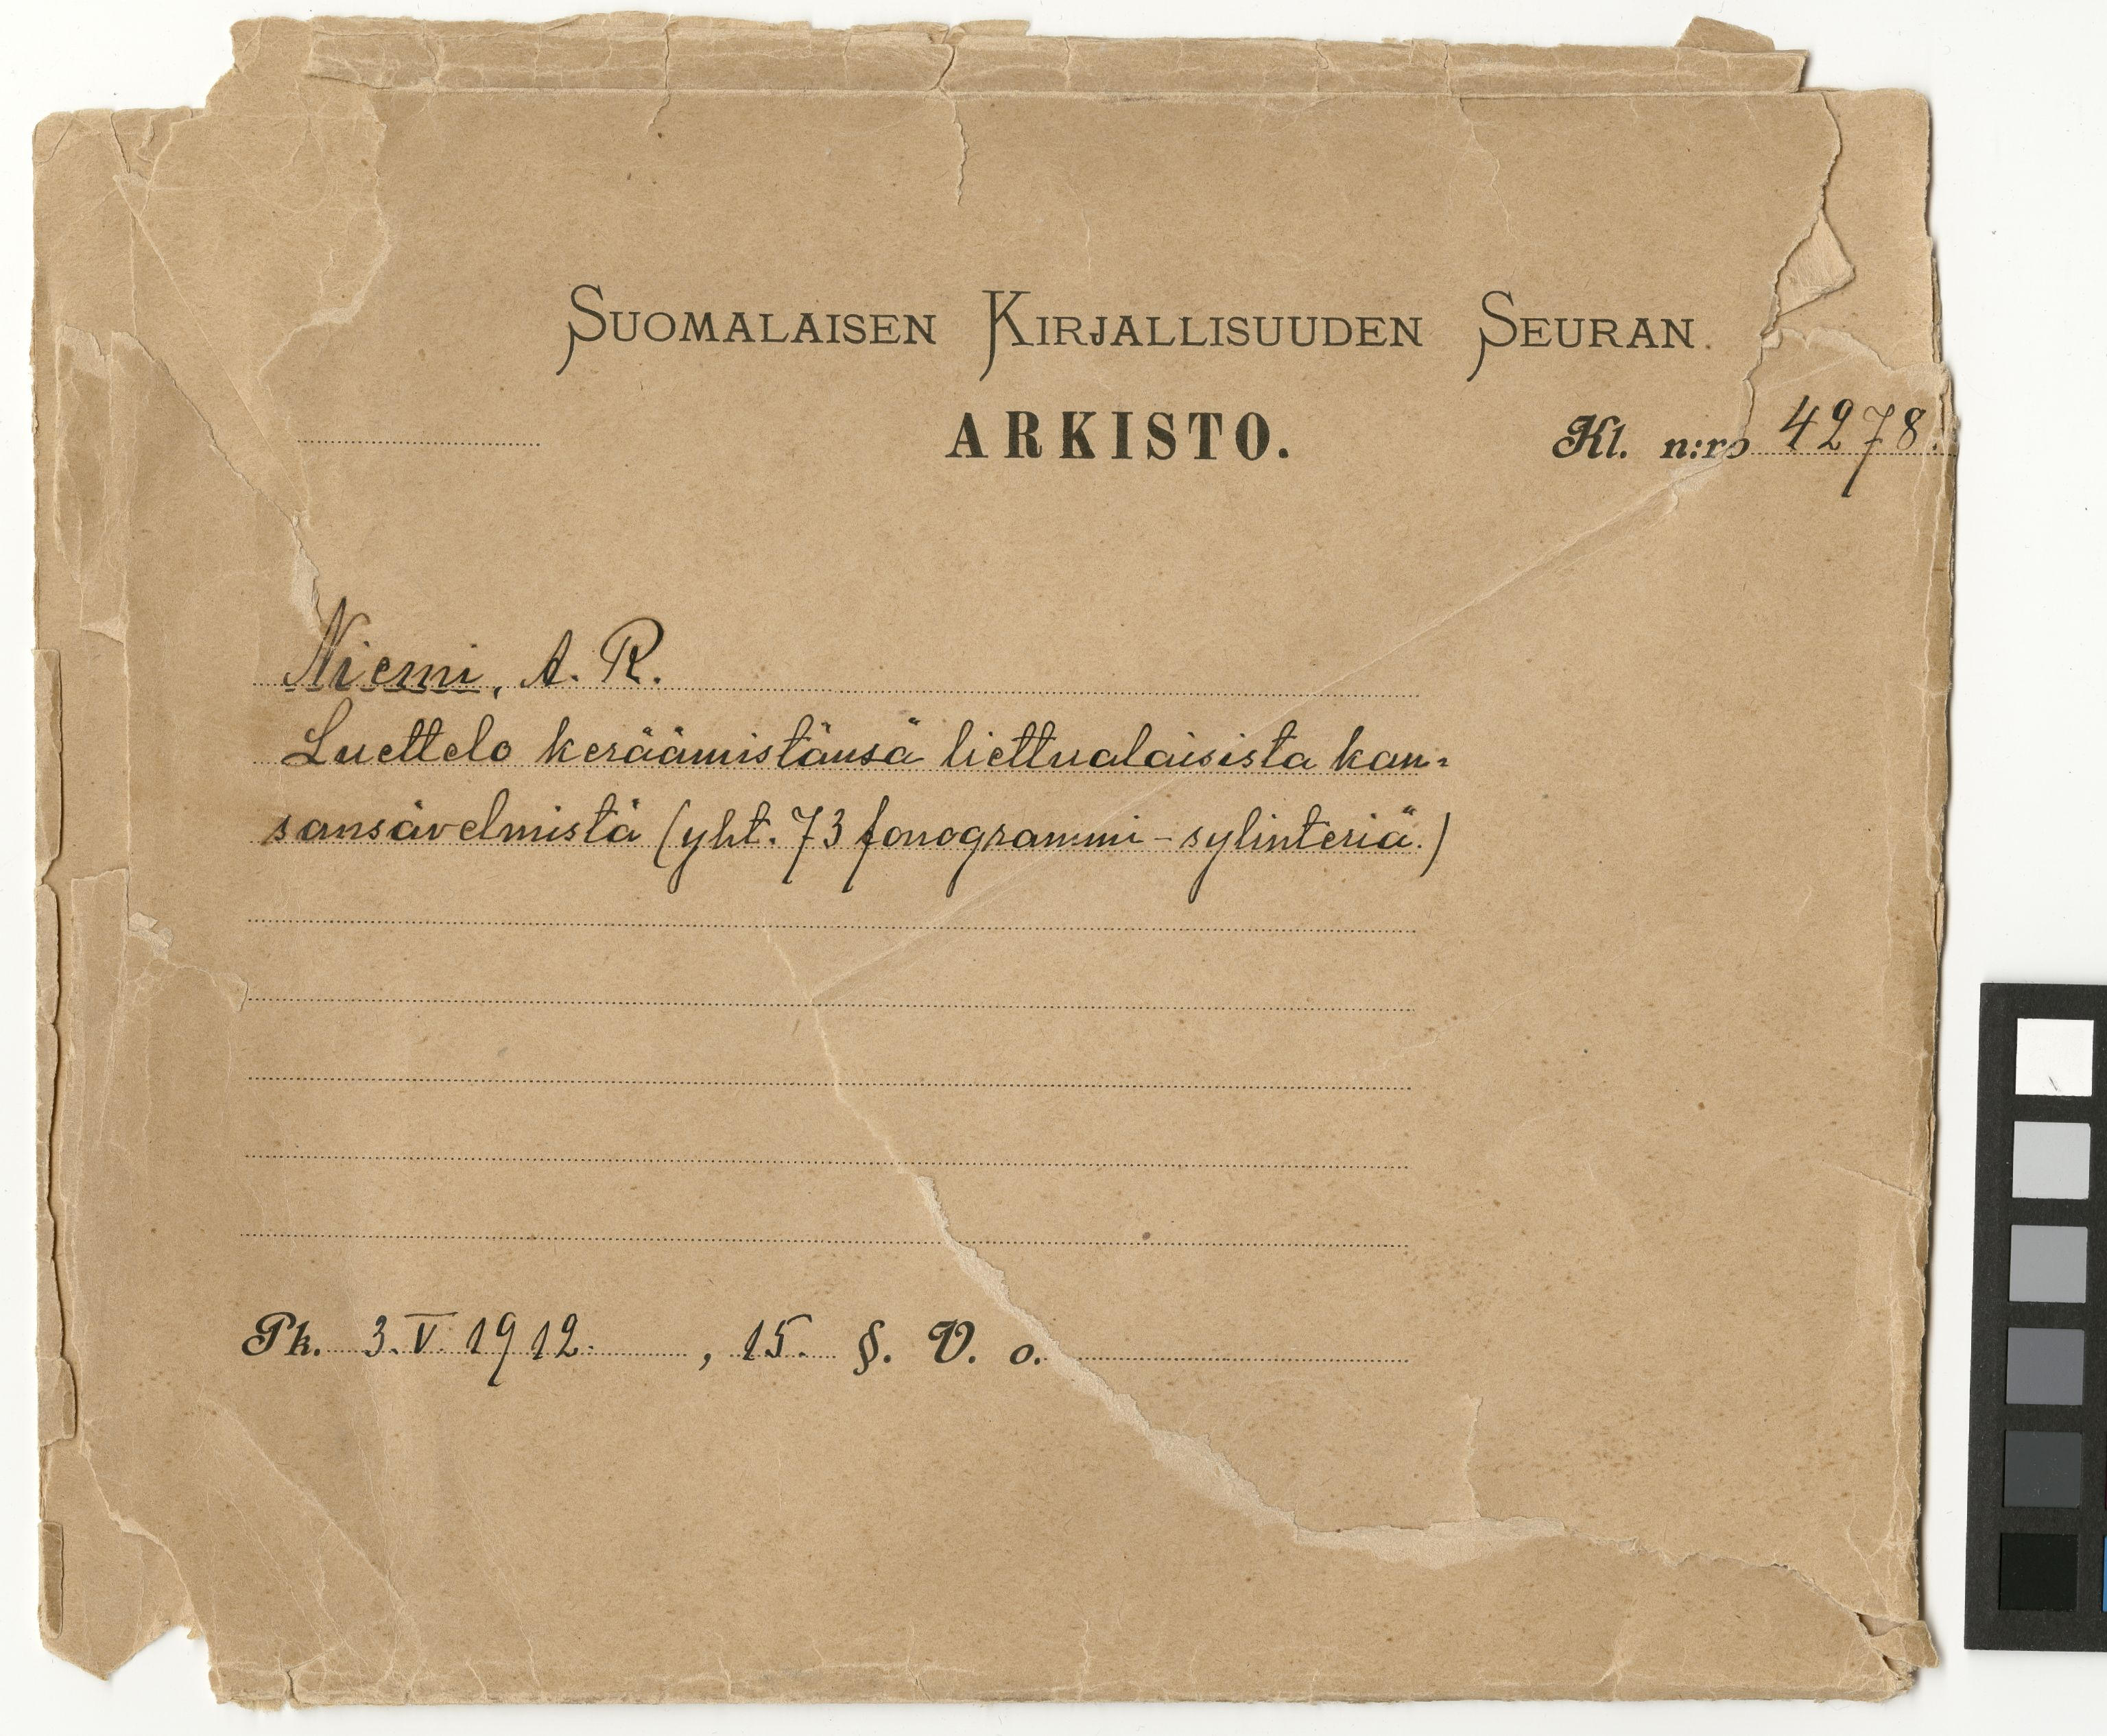 SUOMALAISEN KIRJALLISUUDEN SEURAN.
ARKISTO.
Kl. n:ro 4278.
Niemi, A. R.
Luettelo keräämistänsä liettualaisista kan-
sansävelmistä (yht. 73 fonogrammi-sylinteriä.)
Pk. 3.V.1912. , 15. §. V. o.